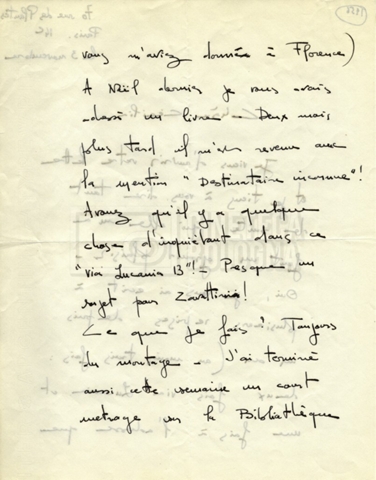 vous m'aviez donnée à Florence)
A Noël dernier je vous avais
adressé un livre - Deux mois
plus tard il m'est revenu avec
la mention "Destinataire inconnu"!
Avouez qu'il y a quelque
chose d'inquiétant dans ce
"via Lucania 13"!- Presque un
sujet pour Zavattini!
Ce que je fais? Toujours
du montage - J'ai terminé
aussi cette semaine un court
métrage sur la Bibliothèque